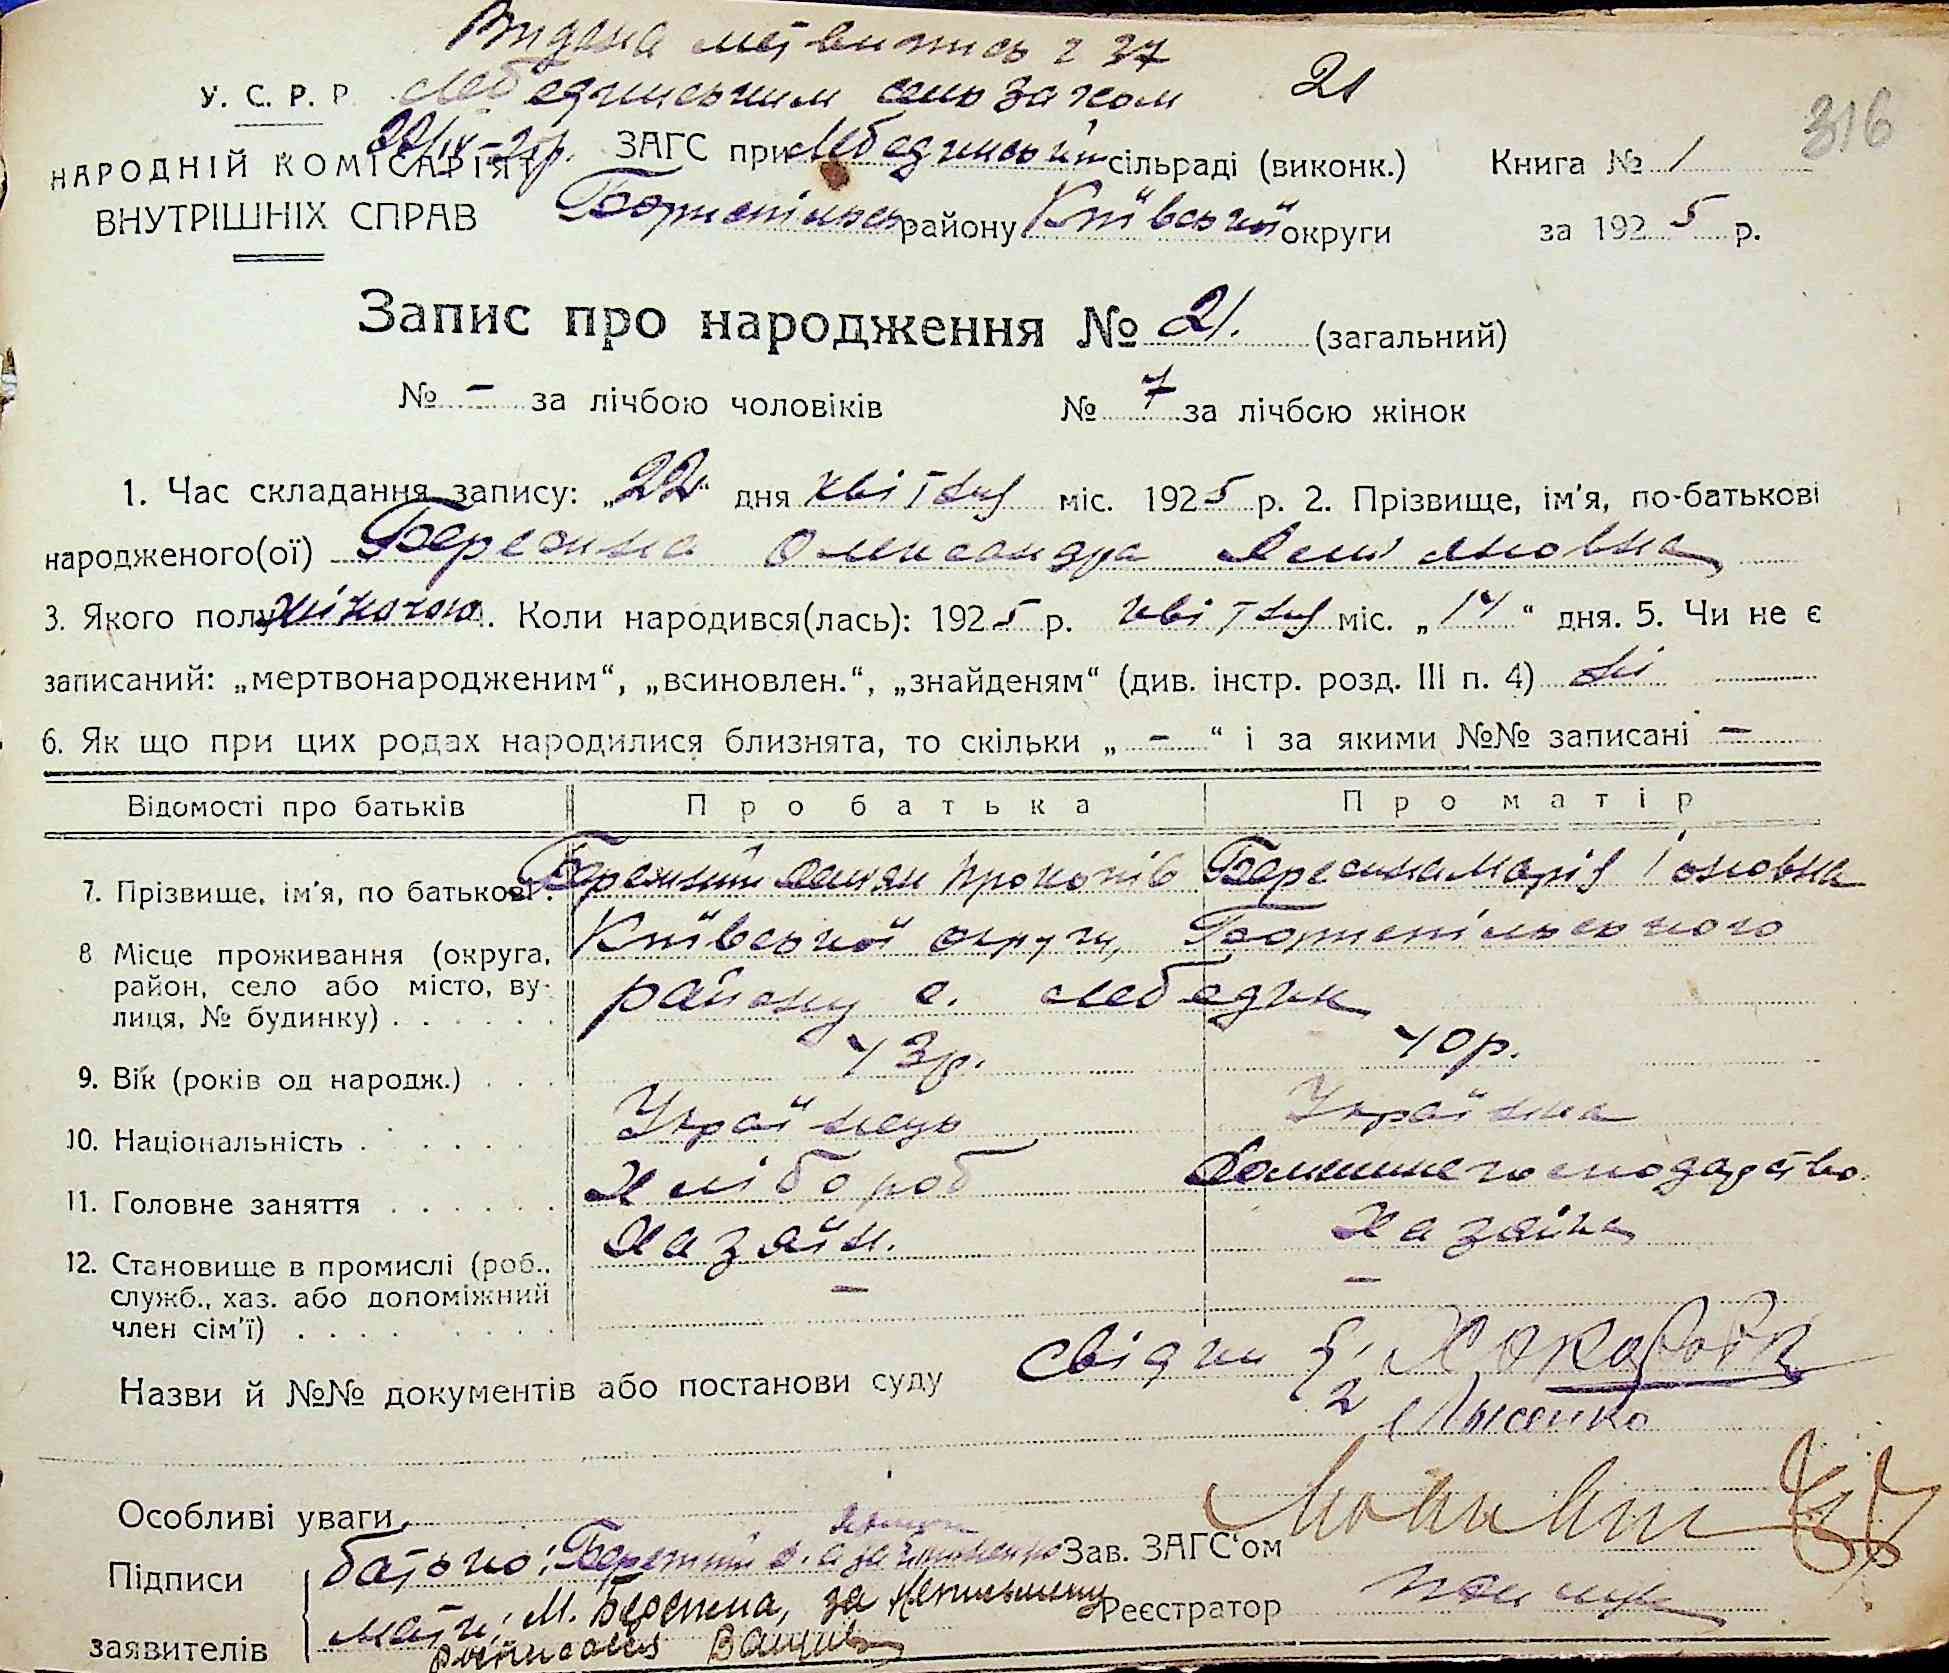 Видана мет. випись г 37
У. С. Р. Р. Лебединським сельзагсом 21
НАРОДНІЙ КОМІСАРІЯТ 22/IV-25р. ЗАГС при Лебединській сільраді (виконк.) Книга № 1 316
ВНУТРІШНІХ СПРАВ Бориспільск району Київської округи за 1925 р.
Запис про народження № 21. (загальний)
№ – за лічбою чоловіків № 7 за лічбою жінок
1. Час складання запису: „22“ дня квітня міс. 1925 р. 2. Прізвище, ім'я, по-батькові
народженого(ої) Бережна Олександра Демяновна
3. Якого полу жіночого. Коли народився(лась): 1925 р. квітня міс. „14“ дня. 5. Чи не є
записаний: „мертвонародженим“, „всиновлен.“, „знайденям“ (див. інстр. розд. III п. 4) ні
6. Як що при цих родах народилися близнята, то скільки „ – “ і за якими №№ записані –
Відомості про батьків Про батька Про матір
7. Прізвище, ім'я, по батькові. Бережний Демян Прокопів Бережна Марія Іоновна
8 Місце проживання (округа, Київської округи, Бориспільського
район, село або місто, ву- району с. Лебедин
лиця, № будинку)
9. Вік (років од народж.) 43р. 40р.
10. Національність Українець Українка
11. Головне заняття Хлібороб Домашнє господарство
12. Становище в промислі (роб., Хазяїн. Хазяйка
служб., хаз. або допоміжний – –
член сім'ї)
Назви й №№ документів або постанови суду Свідки 1,
2 Лысенко
Особливі уваги
Підписи батько: Бережний Зав. ЗАГС'ом
мати: М. Бережна, за неписьмену Реєстратор
заявителів росписався